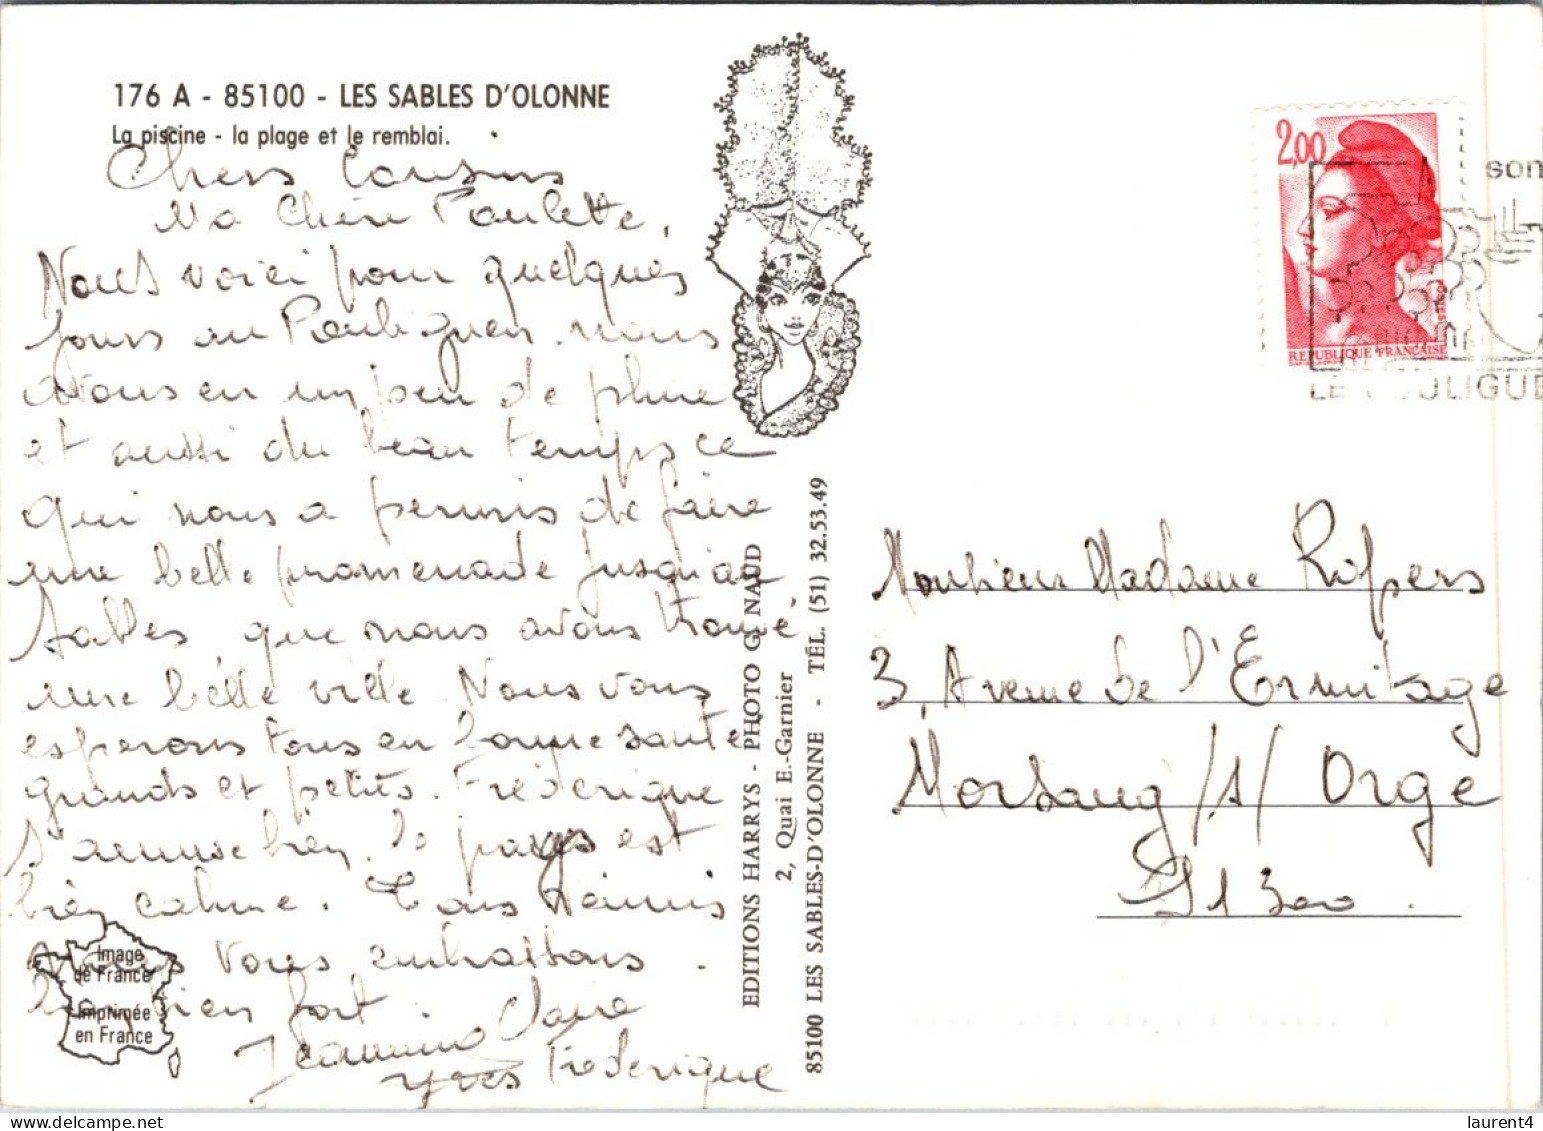 176 A - 85100 - LES SABLES D'OLONNE
La piscine - la plage et le remblai.
Chers Cousins
Ma Chère Paulette,
Nous voici pour quelques
jours au Pouliguen. nous
avons eu un peu de pluie
et aussi du beau temps ce
qui nous a permis de faire
une belle promenade jusqu'au
Sables que nous avons trouvé
une belle ville. Nous vous
esperons tous en bonne santé
grands et petits. Frédérique
s'amuse bien. le pays est
bien calme. Tous réunis
nous vous embrassons
bien fort.
Claire
Yves Frédérique
Image
de France
Imprimée
en France
EDITIONS HARRYS - PHOTO G. NAUD
2, Quai E.-Garnier
85100 LES SABLES-D'OLONNE - TÉL. (51) 32.53.49
2,00
POSTES
REPUBLIQUE FRANÇAISE
son
LE POULIGUE
Monsieur Madame Ropers
3 Avenue de l'Ermitage
Morsang /s/ Orge
91300.
laurent4